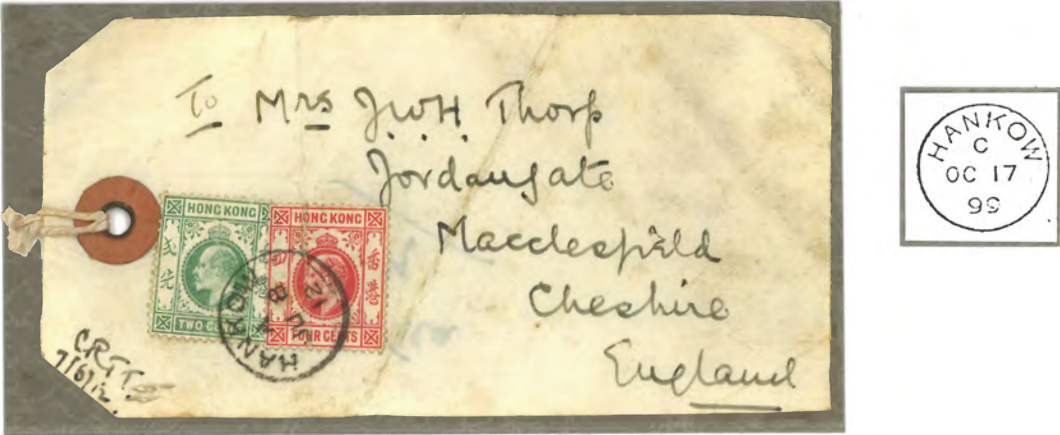 To Mrs J.W.H. Thorp
Jordangate
Macclesfield
Cheshire
England
HONG KONG
TWO CENTS
HONG KONG
香港
FOUR CENTS
HANKOW
B
JU
12
C.R.T.
7/6/12
HANKOW
C
OC 17
99